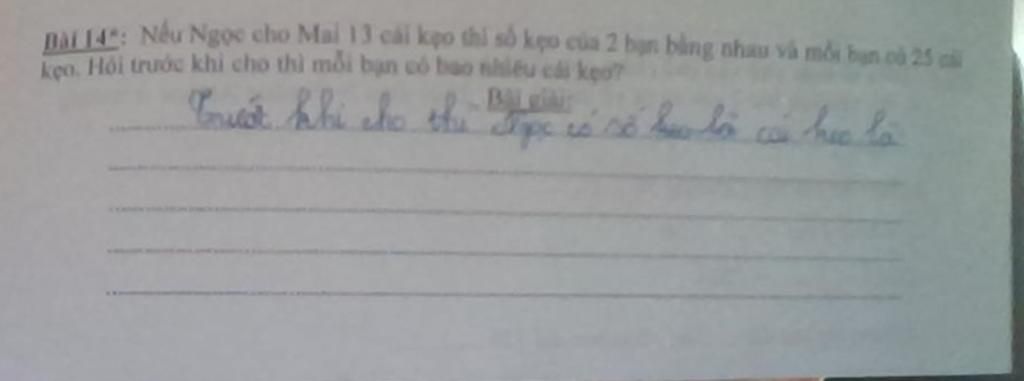 Bài 14*: Nếu Ngọc cho Mai 13 cái kẹo thì số kẹo của 2 bạn bằng nhau và mỗi bạn có 25 cái
kẹo. Hỏi trước khi cho thì mỗi bạn có bao nhiêu cái kẹo?
Bài giải:
Trước khi cho thì Ngọc có số kẹo là cái kẹo là